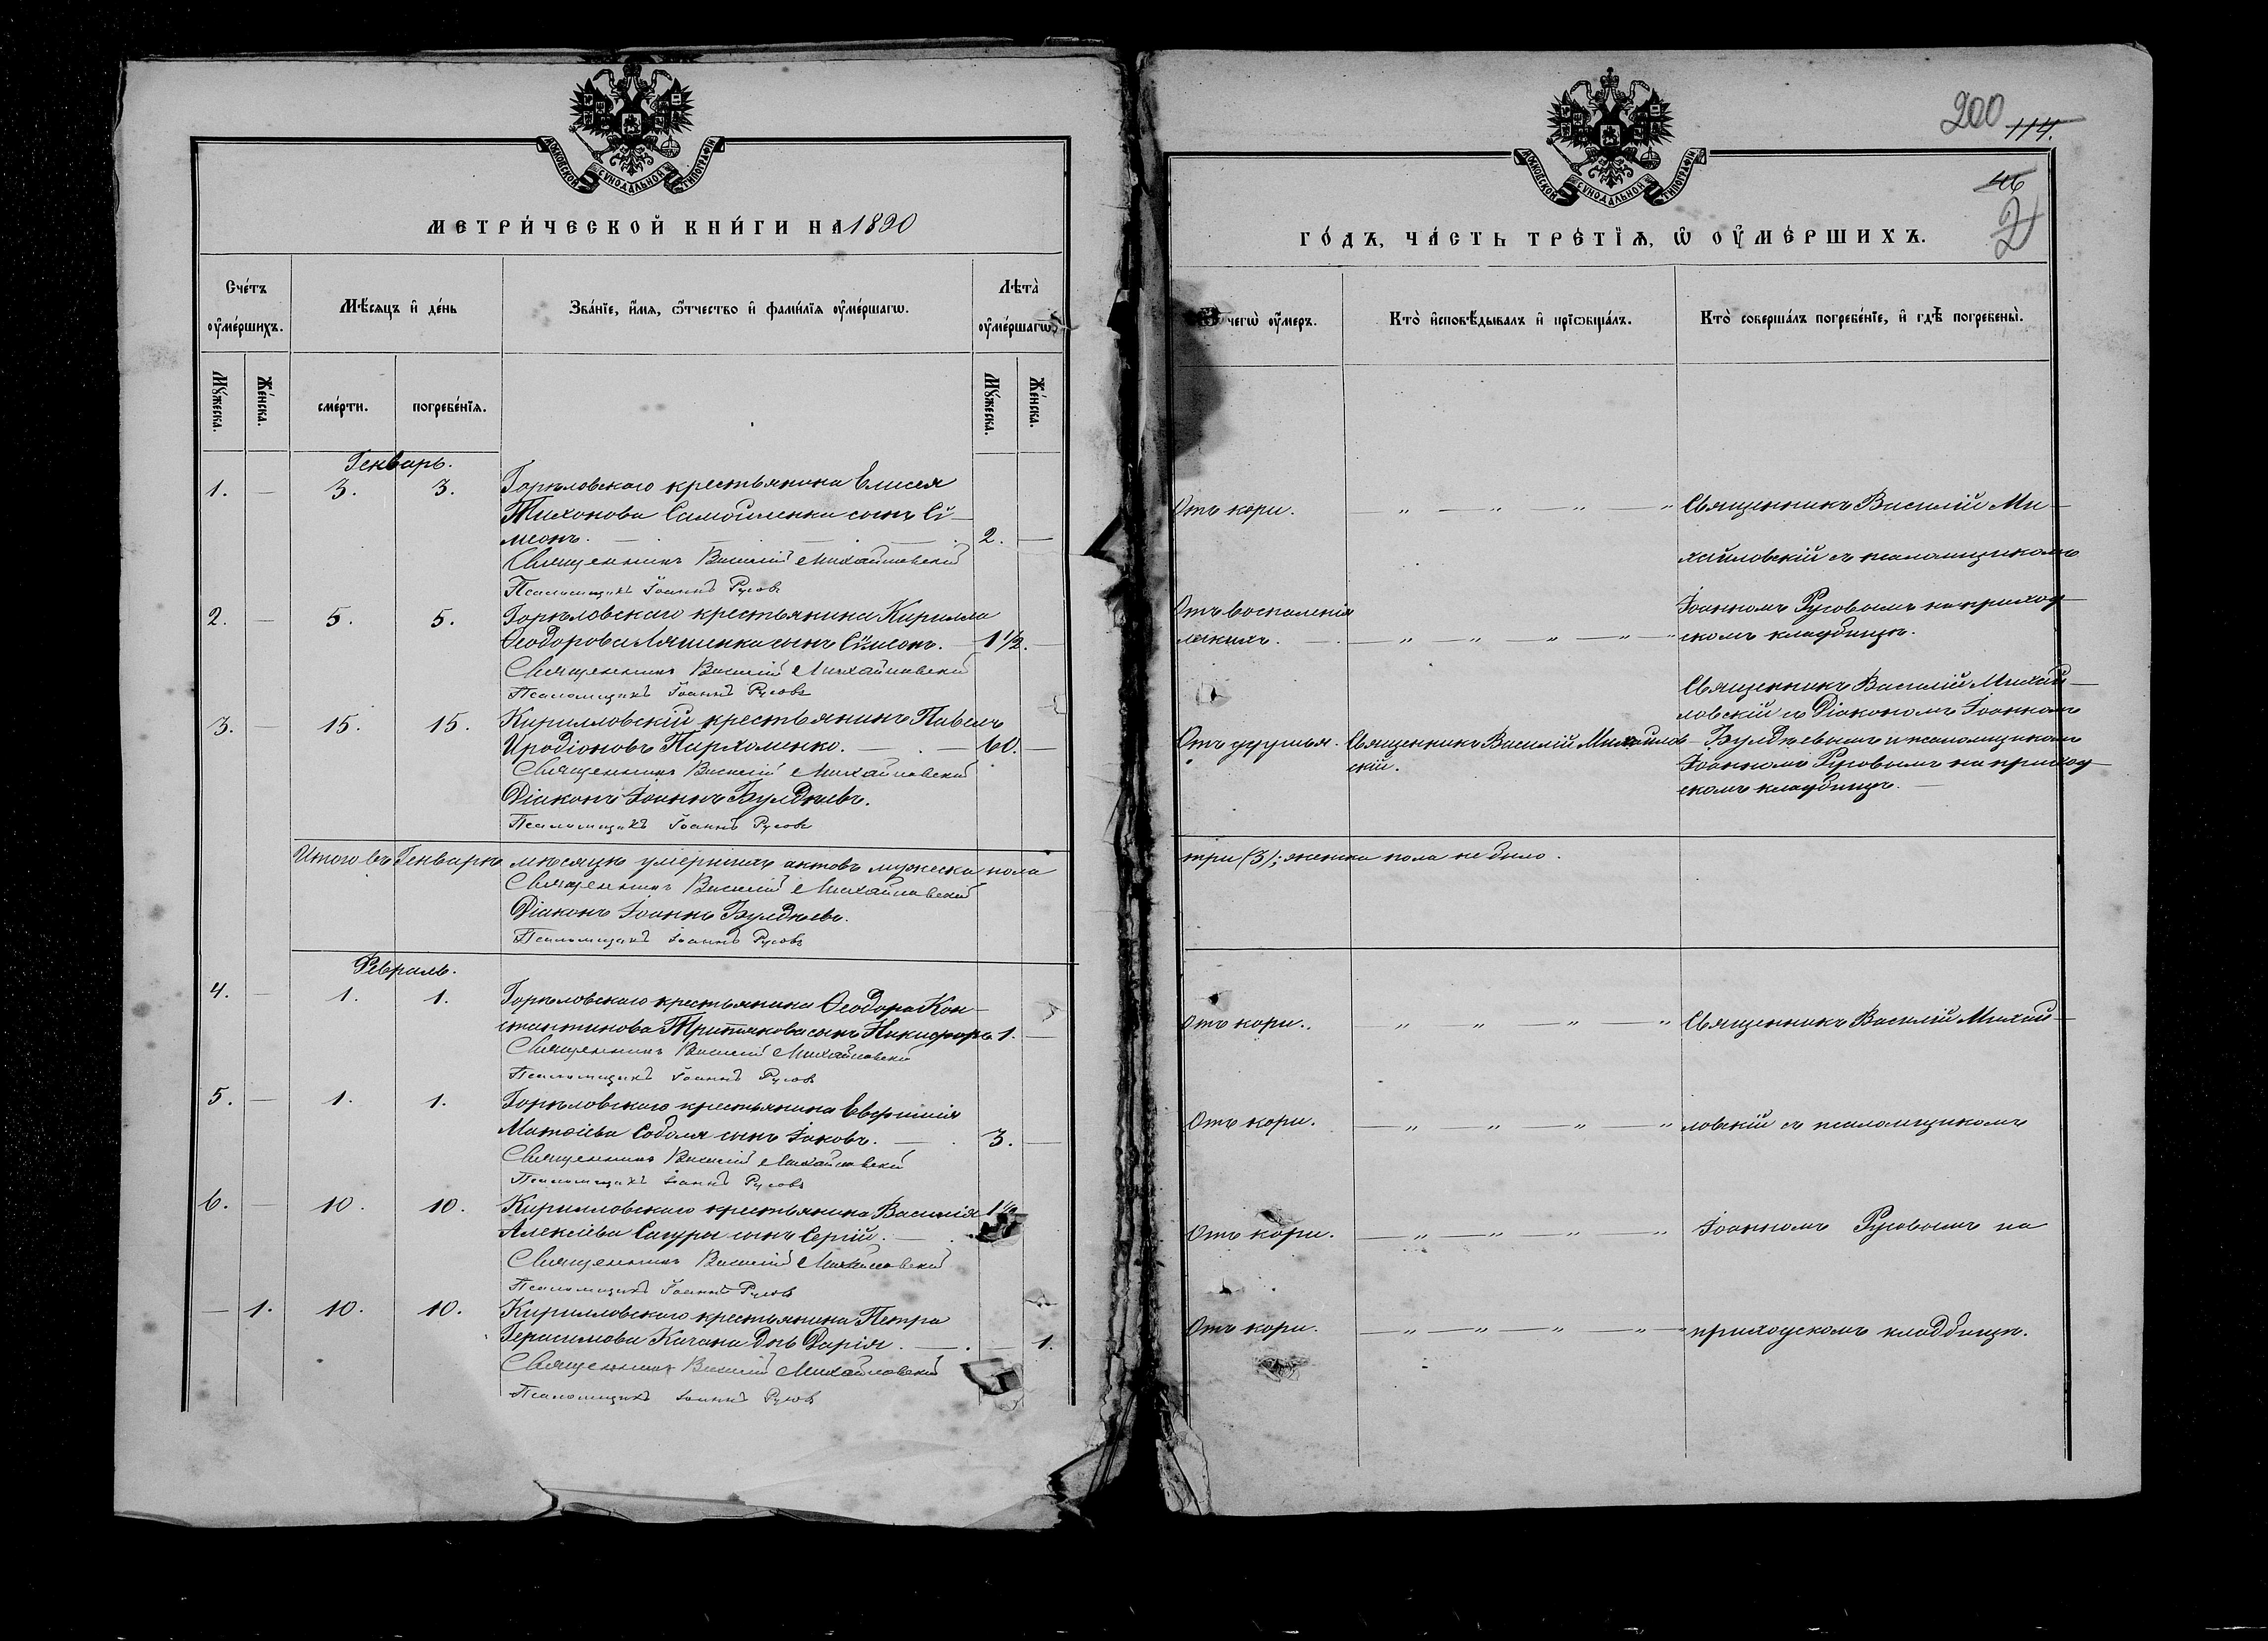 МОСКОВСКОЙ СѴНОДАЛЬНОЙ ТИПОГРАФІИ
МЕТРИ́ЧЕСКОЙ КНИ́ГИ НА 1890
Сче́тъ ᲂу҆ме́ршихъ.
Мѣ́сяцъ и҆ де́нь
Зва́нїе, и҆́мя, ѻ҆́тчество и҆ фами́лїя ᲂу҆ме́ршагѡ.
Лѣта̀ ᲂу҆ме́ршагѡ.
Мꙋ́жеска.
Же́нска.
сме́рти.
погребе́нїя.
Мꙋ́жеска.
Же́нска.
Генварь.
1. — 3. 3. Горѣловскаго крестьянина Елисея
Тихонова Самойленка сынъ Сѵ-
меонъ. — 2. —
Священникъ Василій Михайловскій
Псаломщикъ Іоаннъ Русовъ
2. — 5. 5. Горѣловскаго крестьянина Кирилла
Ѳеодорова Ляшенка сынъ Сѵмеонъ. — 1 1/2. —
Священникъ Василій Михайловскій
Псаломщикъ Іоаннъ Русовъ
3. — 15. 15. Кирилловскій крестьянинъ Павелъ
Иродіоновъ Пархоменко. — 60. —
Священникъ Василій Михайловскій
Діаконъ Іоаннъ Булдѣевъ.
Псаломщикъ Іоаннъ Русовъ
Итого въ Генварѣ мѣсяцѣ умершихъ актовъ мужеска пола
Священникъ Василій Михайловскій
Діаконъ Іоаннъ Булдѣевъ.
Псаломщикъ Іоаннъ Русовъ
Февраль.
4. — 1. 1. Горѣловскаго крестьянина Ѳеодора Кон-
стантинова Третякова сынъ Никифоръ. 1. —
Священникъ Василій Михайловскій
Псаломщикъ Іоаннъ Русовъ
5. — 1. 1. Горѣловскаго крестьянина Евфимія
Матѳіева Соболя сынъ Іаковъ. — 3. —
Священникъ Василій Михайловскій
Псаломщикъ Іоаннъ Русовъ
6. — 10. 10. Кирилловскаго крестьянина Василія 1 1/2
Алексѣева Сагуры сынъ Сергій. —
Священникъ Василій Михайловскій
Псаломщикъ Іоаннъ Русовъ
— 1. 10. 10. Кирилловскаго крестьянина Петра
Герасимова Качана дчь Дарія. — 1.
Священникъ Василій Михайловскій
Псаломщикъ Іоаннъ Русовъ
200 114.
46
2
МОСКОВСКОЙ СѴНОДАЛЬНОЙ ТИПОГРАФІИ
ГО́ДЪ, ЧА́СТЬ ТРЕ́ТЇЯ, Ѡ҆ ОУ҆МЕ́РШИХЪ.
Ѿ чегѡ̀ ᲂу҆́меръ.
Кто̀ и҆сповѣ́дывалъ и҆ прїѡбща́лъ.
Кто̀ соверша́лъ погребе́нїе, и҆ гдѣ̀ погребены̀.
Отъ кори. — „ — „ — „ — „ Священникъ Василій Ми-
хайловскій съ псаломщикомъ
Отъ воспаленія Іоанномъ Русовымъ на приход-
легкихъ. — „ — „ — „ — „ скомъ кладбищѣ.
Священникъ Василій Михай-
ловскій съ Діакономъ Іоанномъ
Отъ удушья. Священникъ Василій Михайлов- Булдѣевымъ и псаломщикомъ
скій. Іоанномъ Русовымъ на приход-
скомъ кладбищѣ. —
три (3); женска пола не было.
Отъ кори. „ — „ — „ — „ Священникъ Василій Михай-
Отъ кори. — „ — „ — „ — „ ловскій съ псаломщикомъ
Отъ кори. — „ — „ — „ — „ Іоанномъ Русовымъ на
Отъ кори. — „ — „ — „ — „ приходскомъ кладбищѣ.